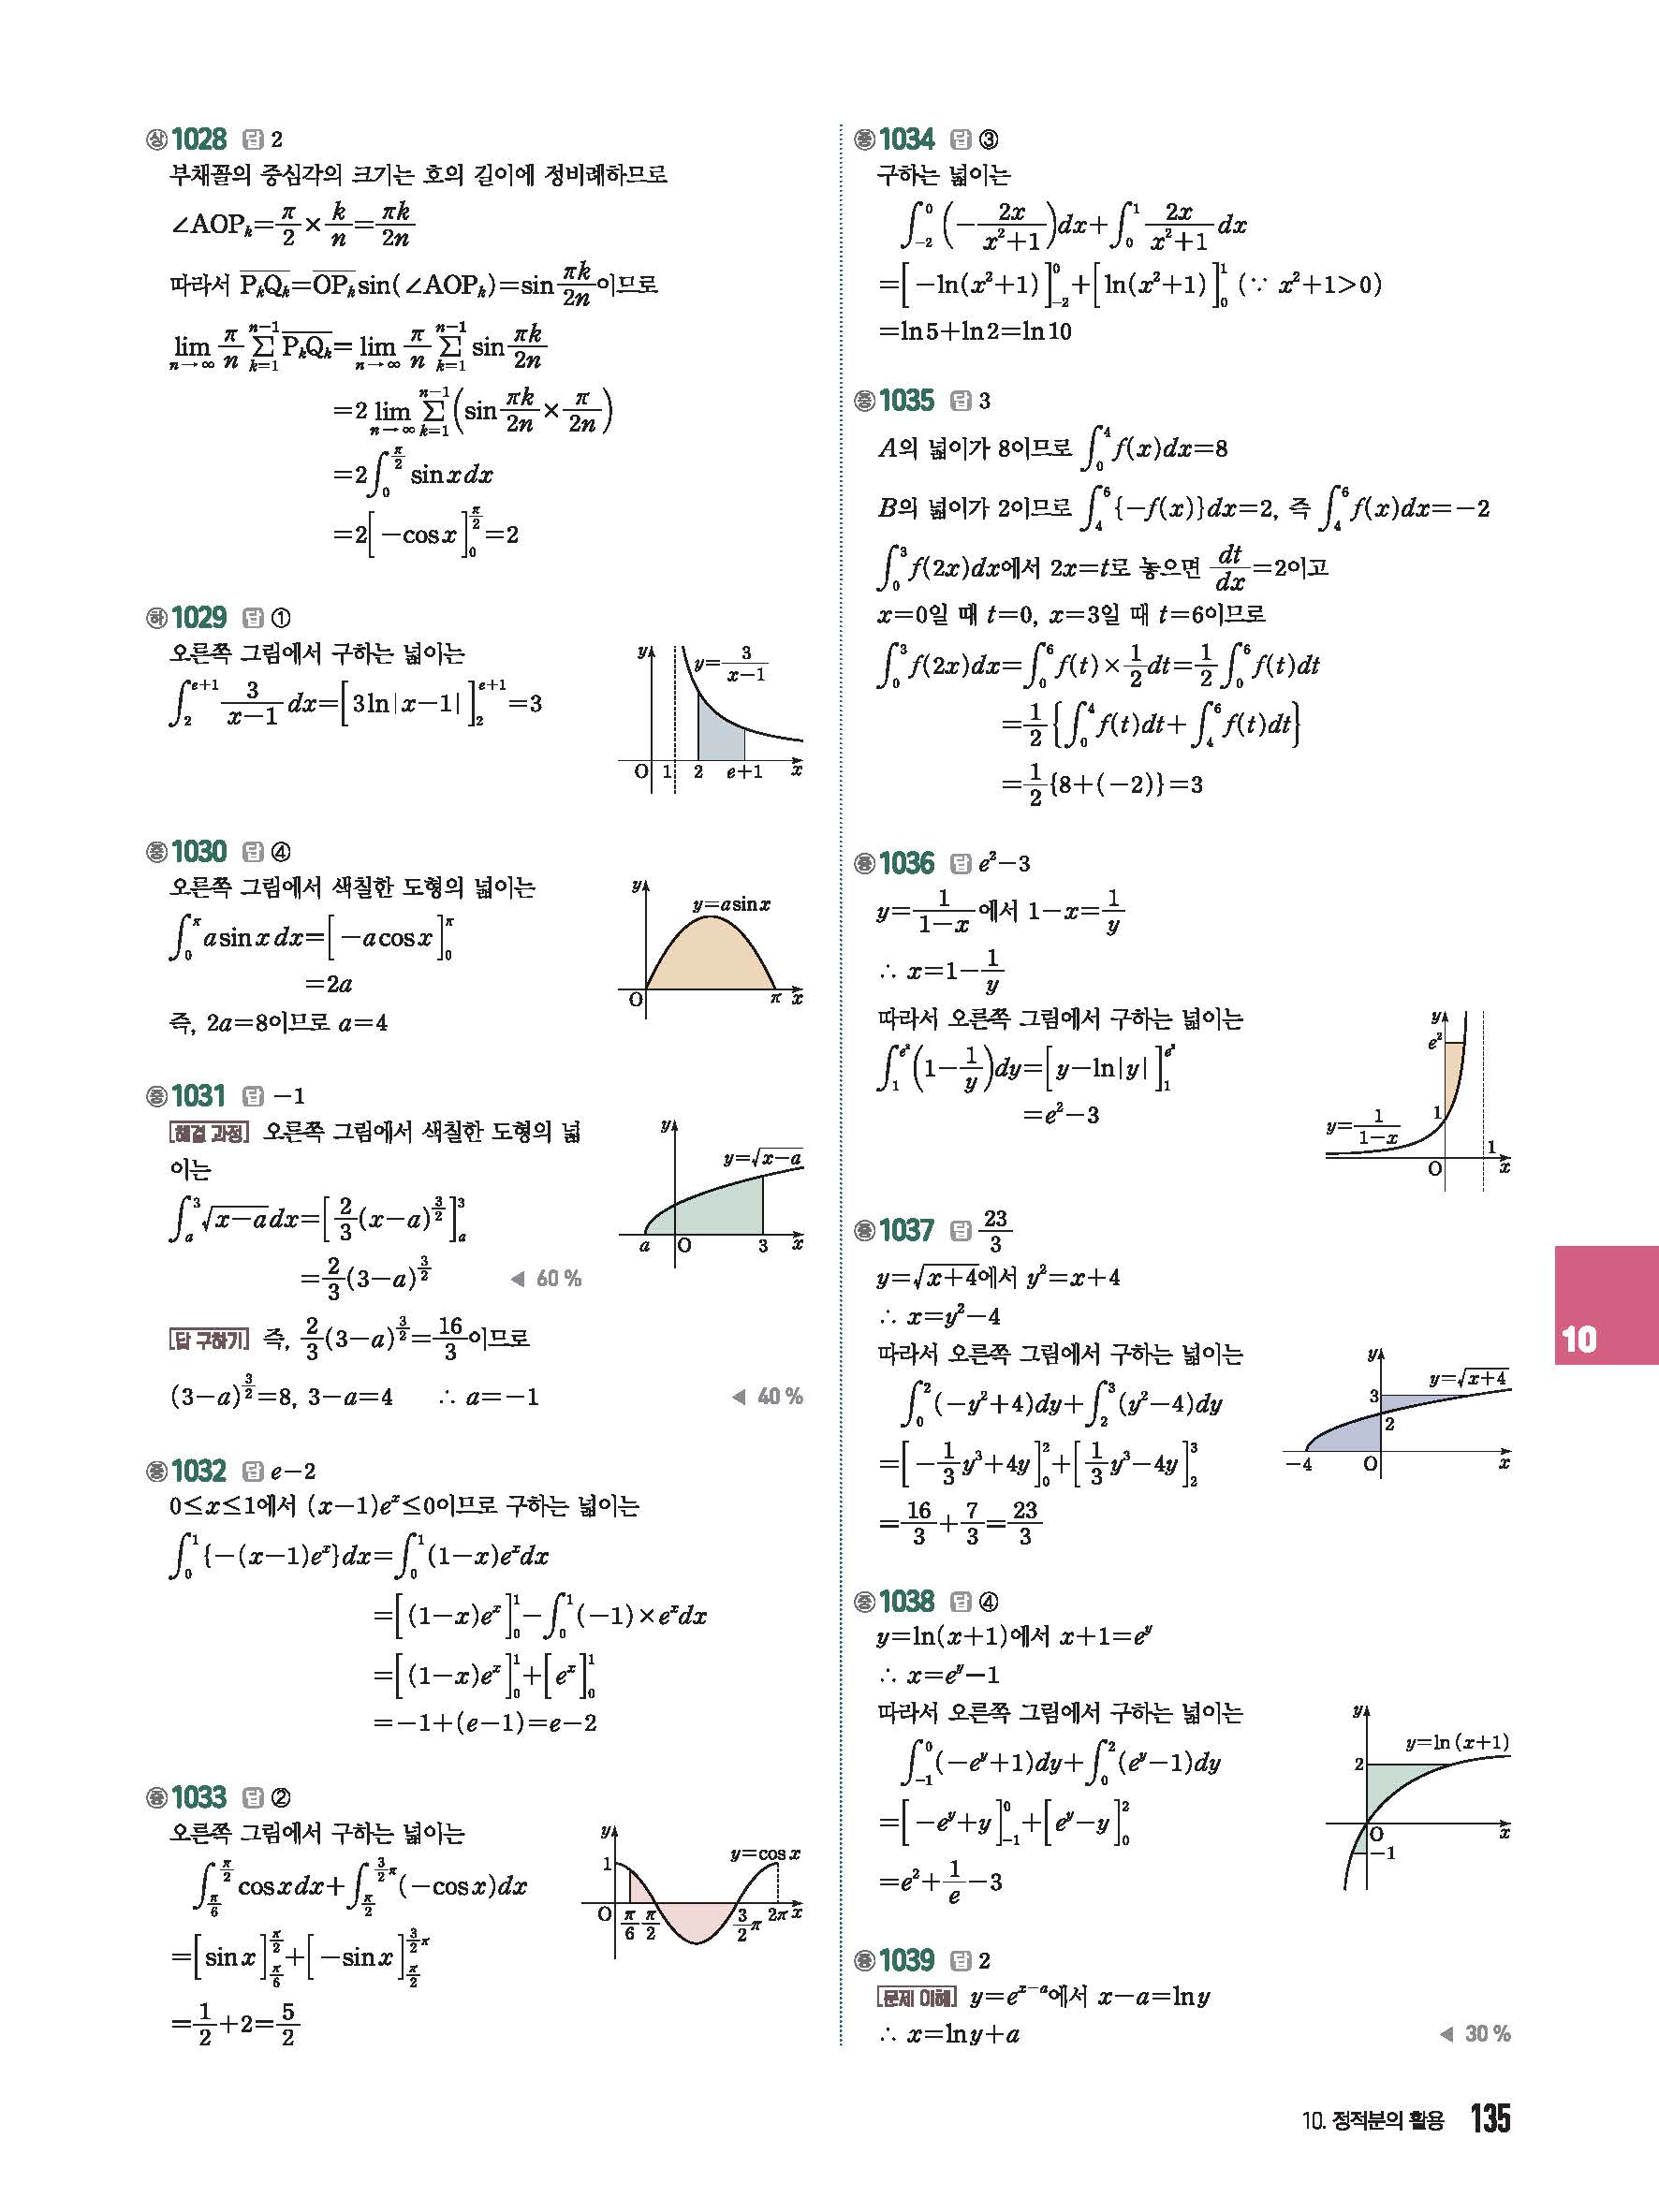 상 1028 답 2
부채꼴의 중심각의 크기는 호의 길이에 정비례하므로
∠AOPₖ=π/2×k/n=πk/2n
따라서 P̅ₖ̅Q̅ₖ̅=O̅P̅ₖ̅sin(∠AOPₖ)=sin πk/2n이므로
lim_{n→∞} π/n Σ_{k=1}^{n-1} P̅ₖ̅Q̅ₖ̅=lim_{n→∞} π/n Σ_{k=1}^{n-1} sin πk/2n
=2 lim_{n→∞} Σ_{k=1}^{n-1}(sin πk/2n×π/2n)
=2∫_0^{π/2} sin x dx
=2[-cos x]_0^{π/2}=2
하 1029 답 ①
오른쪽 그림에서 구하는 넓이는
∫_2^{e+1} 3/(x-1) dx=[3ln|x-1|]_2^{e+1}=3
y
y=3/(x-1)
O 1 2 e+1 x
중 1030 답 ④
오른쪽 그림에서 색칠한 도형의 넓이는
∫_0^π a sin x dx=[-a cos x]_0^π
=2a
즉, 2a=8이므로 a=4
y
y=a sin x
O π x
중 1031 답 -1
해결 과정 오른쪽 그림에서 색칠한 도형의 넓
이는
∫_a^3 √(x-a) dx=[2/3(x-a)^{3/2}]_a^3
=2/3(3-a)^{3/2} ◀ 60 %
y
y=√(x-a)
a O 3 x
답 구하기 즉, 2/3(3-a)^{3/2}=16/3이므로
(3-a)^{3/2}=8, 3-a=4 ∴ a=-1 ◀ 40 %
중 1032 답 e-2
0≤x≤1에서 (x-1)eˣ≤0이므로 구하는 넓이는
∫_0^1 {-(x-1)eˣ}dx=∫_0^1 (1-x)eˣdx
=[(1-x)eˣ]_0^1-∫_0^1 (-1)×eˣdx
=[(1-x)eˣ]_0^1+[eˣ]_0^1
=-1+(e-1)=e-2
중 1033 답 ②
오른쪽 그림에서 구하는 넓이는
∫_{π/6}^{π/2} cos x dx+∫_{π/2}^{3/2π} (-cos x)dx
=[sin x]_{π/6}^{π/2}+[-sin x]_{π/2}^{3/2π}
=1/2+2=5/2
y
1
y=cos x
O π/6 π/2 3/2π 2π x
중 1034 답 ③
구하는 넓이는
∫_{-2}^0 (-2x/(x²+1))dx+∫_0^1 2x/(x²+1) dx
=[-ln(x²+1)]_{-2}^0+[ln(x²+1)]_0^1 (∵ x²+1>0)
=ln5+ln2=ln10
중 1035 답 3
A의 넓이가 8이므로 ∫_0^4 f(x)dx=8
B의 넓이가 2이므로 ∫_4^6 {-f(x)}dx=2, 즉 ∫_4^6 f(x)dx=-2
∫_0^3 f(2x)dx에서 2x=t로 놓으면 dt/dx=2이고
x=0일 때 t=0, x=3일 때 t=6이므로
∫_0^3 f(2x)dx=∫_0^6 f(t)×1/2dt=1/2∫_0^6 f(t)dt
=1/2{∫_0^4 f(t)dt+∫_4^6 f(t)dt}
=1/2{8+(-2)}=3
중 1036 답 e²-3
y=1/(1-x)에서 1-x=1/y
∴ x=1-1/y
따라서 오른쪽 그림에서 구하는 넓이는
∫_1^{e²}(1-1/y)dy=[y-ln|y|]_1^{e²}
=e²-3
y
e²
1
y=1/(1-x)
1
O x
중 1037 답 23/3
y=√(x+4)에서 y²=x+4
∴ x=y²-4
따라서 오른쪽 그림에서 구하는 넓이는
∫_0^2 (-y²+4)dy+∫_2^3 (y²-4)dy
=[-1/3y³+4y]_0^2+[1/3y³-4y]_2^3
=16/3+7/3=23/3
y
y=√(x+4)
3
2
-4 O x
중 1038 답 ④
y=ln(x+1)에서 x+1=eʸ
∴ x=eʸ-1
따라서 오른쪽 그림에서 구하는 넓이는
∫_{-1}^0 (-eʸ+1)dy+∫_0^2 (eʸ-1)dy
=[-eʸ+y]_{-1}^0+[eʸ-y]_0^2
=e²+1/e-3
y
y=ln(x+1)
2
O x
-1
중 1039 답 2
문제 이해 y=e^{x-a}에서 x-a=ln y
∴ x=ln y+a ◀ 30 %
10
10. 정적분의 활용 135